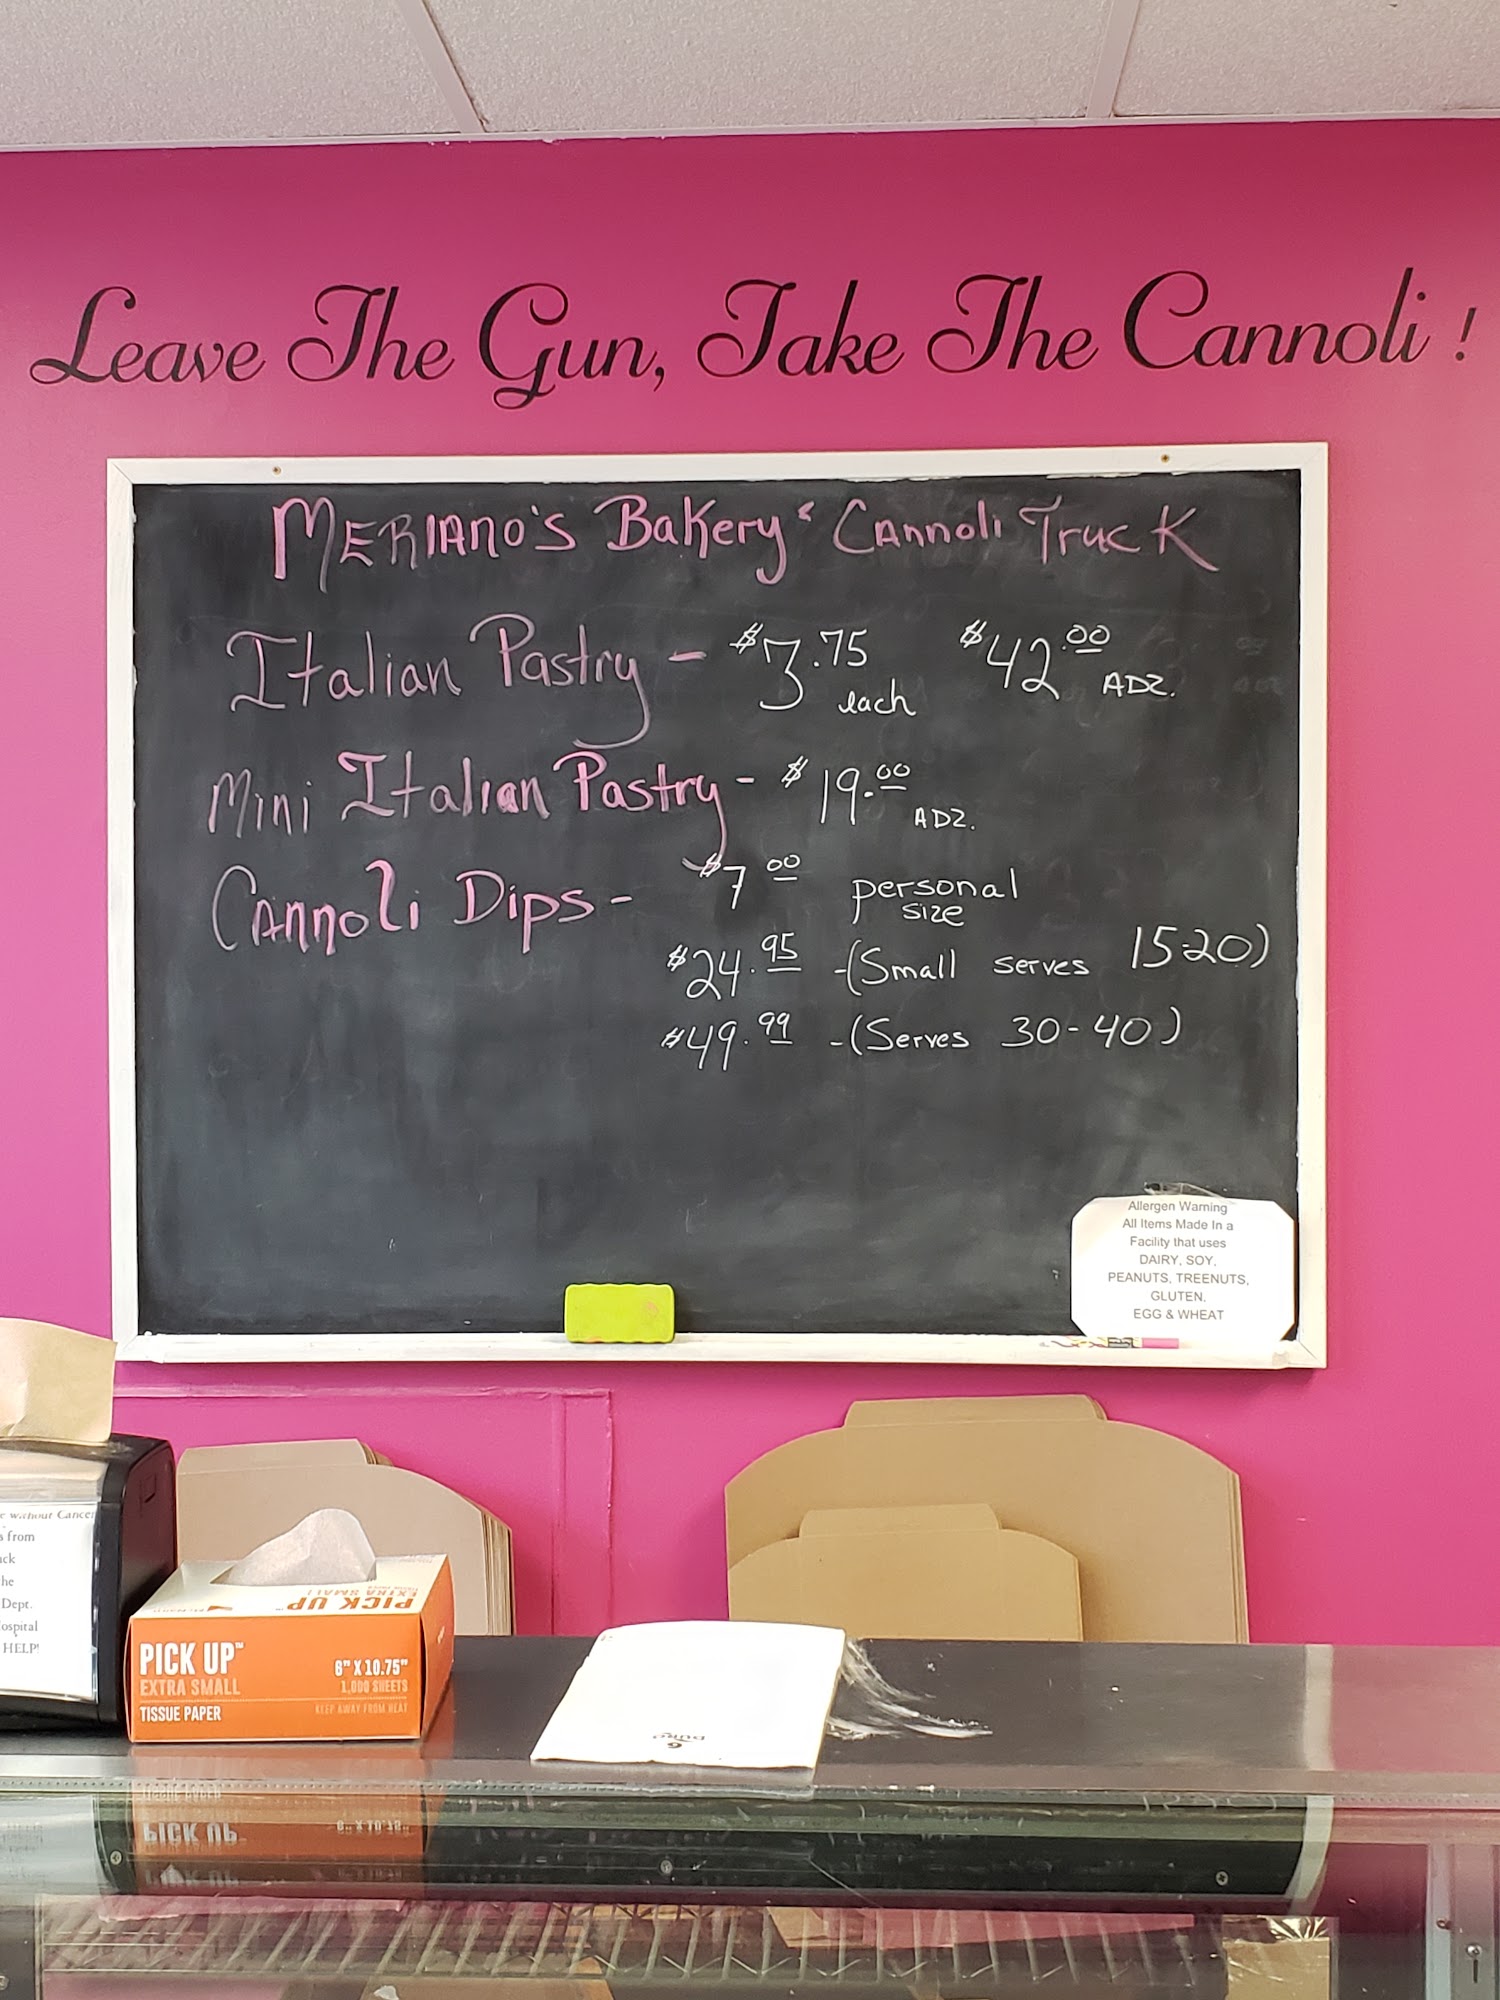 Leave The Gun, Take The Cannoli!
MERIANO'S BAKERY & CANNOLI TRUCK
Italian Pastry - $3.75 each $42.00 A DZ.
Mini Italian Pastry - $19.00 A DZ.
Cannoli Dips - $7.00 personal size
$24.95 - (Small serves 15-20)
$49.99 - (Serves 30-40)
Allergen Warning
All Items Made In a
Facility that uses
DAIRY, SOY,
PEANUTS, TREENUTS,
GLUTEN,
EGG & WHEAT
without Cancer
from
he
Dept.
HELP!
PICK UP
EXTRA SMALL
PICK UP™
EXTRA SMALL
TISSUE PAPER
6" X 10.75"
1,000 SHEETS
KEEP AWAY FROM HEAT
6
DURO